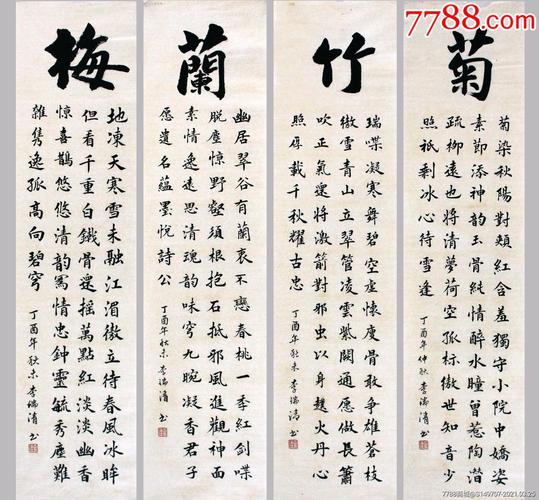 7788.com
梅
地凍天寒雪未融江湄傲立待春風冰眸
但看千重白鐵骨還搖萬點紅淡淡幽香
惊喜鵲悠悠清韵寫情忠鍾靈毓秀塵難
雜隽逸孤高向碧穹
丁酉年秋末李瑞清书
蘭
幽居翠谷有蘭衷不戀春桃一季紅剑喋
脱塵惊野壑須根抱石抵邪風進觀神面
素情逸遠思清魂韵味穹九畹凝香君子
愿遺名蘊墨悦詩公
丁酉年秋末李瑞清书
竹
瑞喋凝寒舞碧空虚懷慶骨敢争雄蒼枝
傲雪青山立翠管凌雲紫闕通愿做長簫
吹正氣還將激箭對邪虫以身趕火丹心
照厚載千秋耀古忠
丁酉年秋末李瑞清书
菊
菊染秋陽對頰紅含羞獨守小院中嬌姿
素節添神韵玉骨純情醉水瞳曾惹陶潜
疏柳遠也將清夢荷空孤标傲世知音少
照祇剩冰心待雪逢
丁酉年仲秋李瑞清书